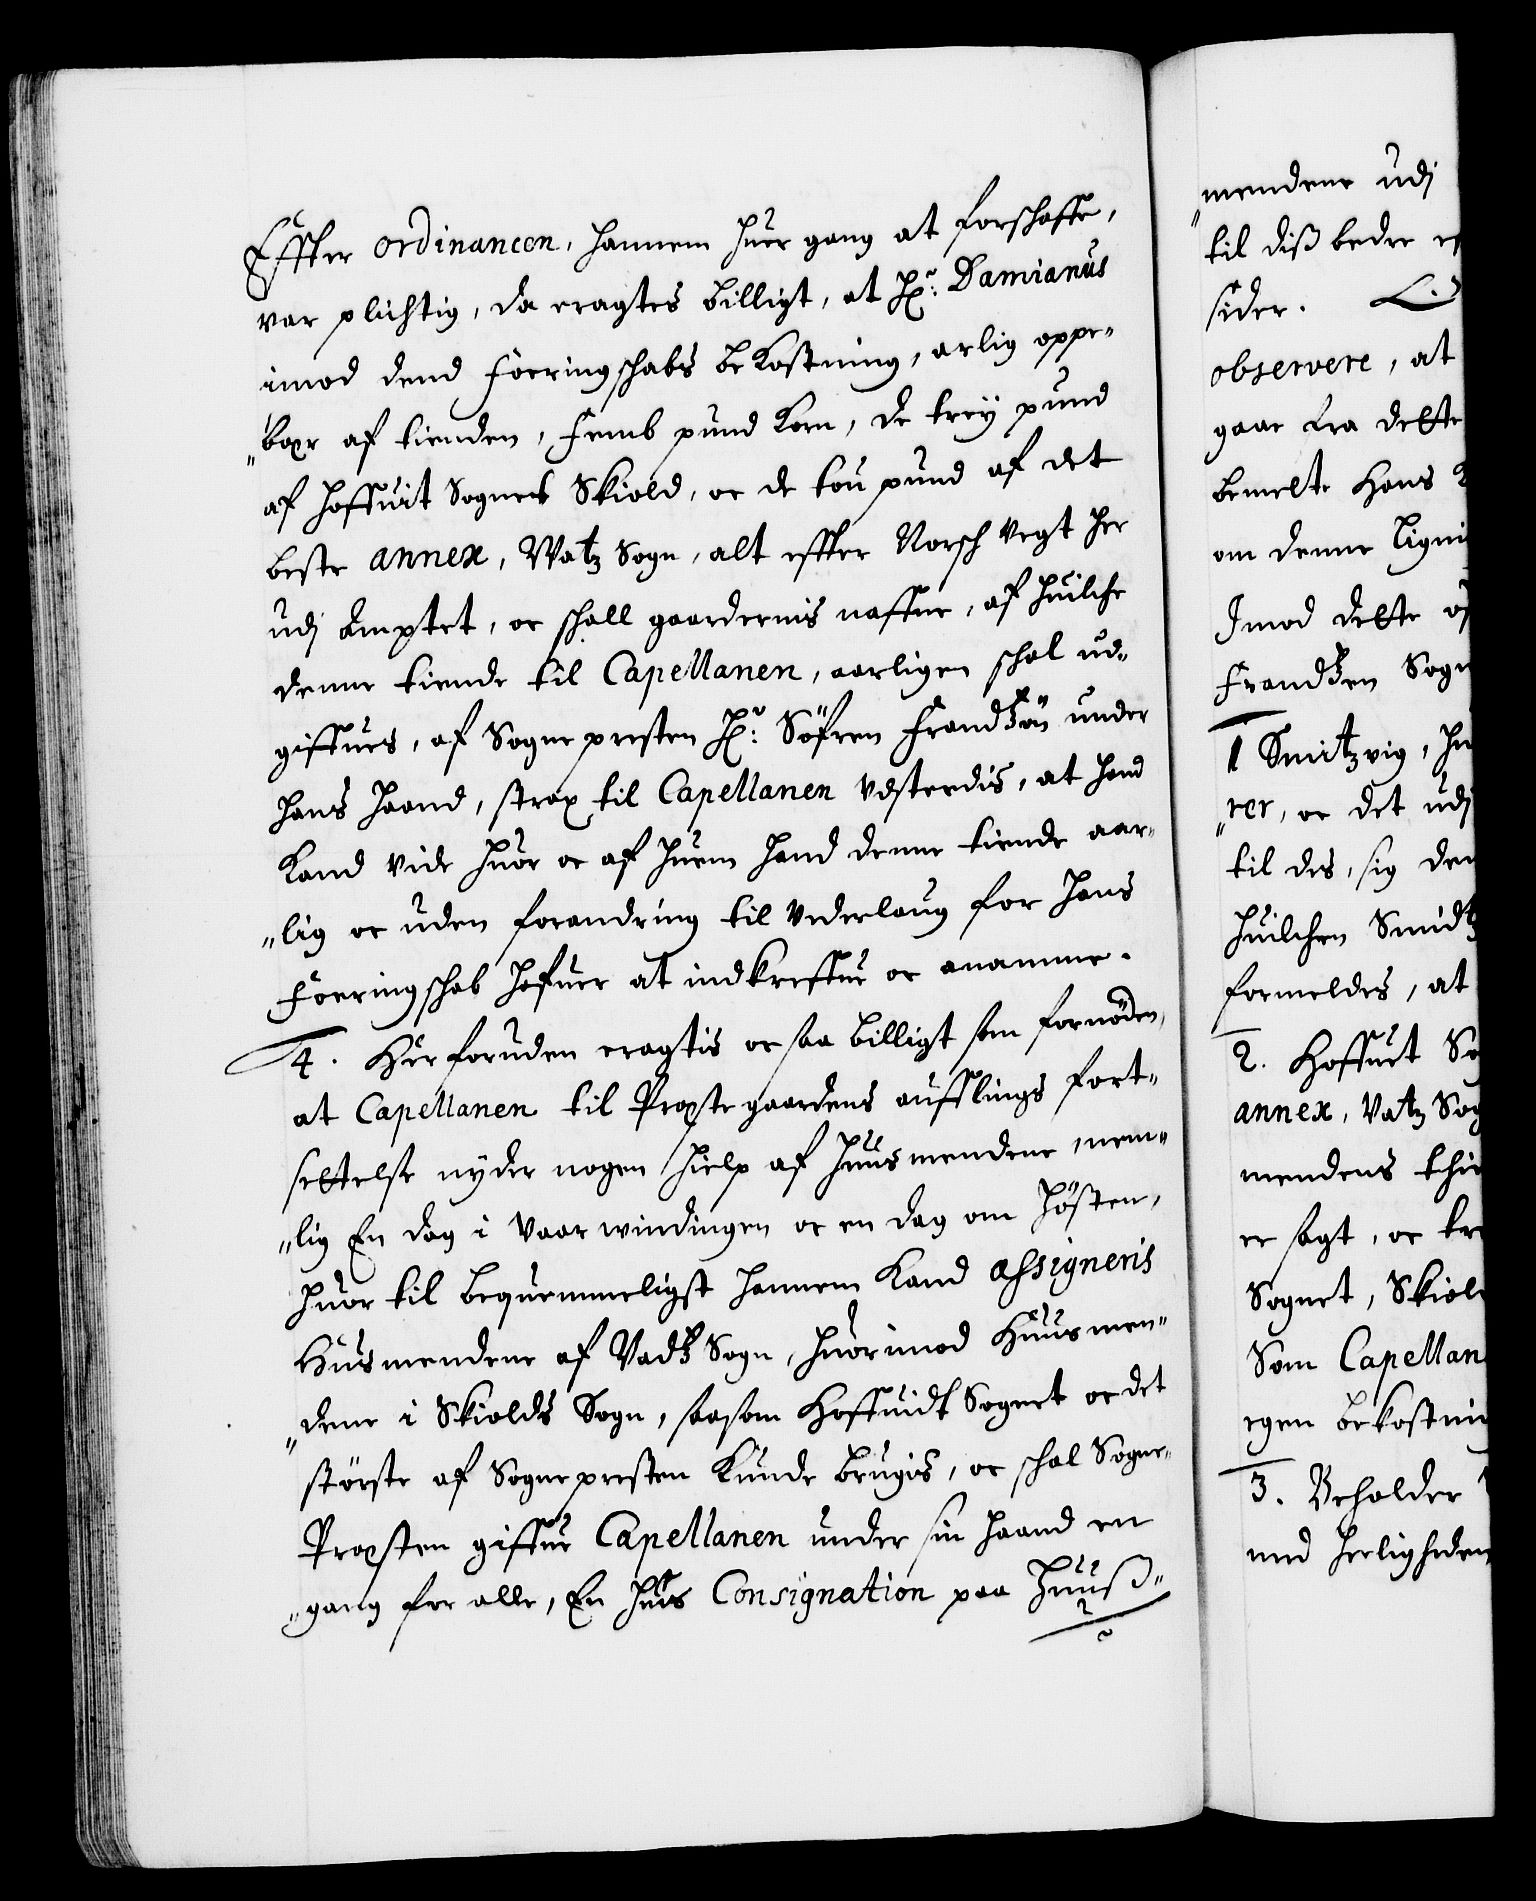 Effter ordinancen, hannem huer gang at forschaffe,
var plichtig, da eragtes billigt, at Hr: Damianus
imod dend Foeringschabs bekostning, arlig oppe-
"bær af tienden, Femb pund korn, de trey pund
af Hoffuit Sognes Skiold, oc de tou pund af det
beste annex, Watz Sogn, alt effter Norsch vegt her
udj Amptet, oc schall gaardernis naffne, af huilche
denne tiende til Capellanen, aarligen schal ud-
giffues, af Sognepresten Hr: Söfren Frandtzön under
hans haand, strax til Capellanen udsterdis, at hand
kand vide huor oc af huem hand denne tiende aar-
"lig oc uden forandring til vederlaug for hans
Foeringschab hafuer at indkreffue oc anamme.
4. Herforuden eragtis oc saa billigt som fornöden,
at Capellanen til Præstegaardens aufflings fort-
settelse nyder nogen hielp af huusmendene, nem-
"lig En dag i vaarwindingen oc en dag om hösten,
huor til bequemmeligst hannem kand assigneris
Husmendene af Vadtz Sogn, huorimod Huusmen-
"dene i Skiolds Sogn, saasom Hoffuidt Sognet oc det
störste af Sognepresten kunde brugis, oc schal Sogne-
Præsten giffue Capellanen under sin haand en
"gang for alle, En huis Consignation paa Huuß-
"mendene udj
til diß bedre
sider.
observere, at
gaar fra dette
bemelte Hans
om denne
Imod dette
Frandtzen Sogn
1 Smitzvig,
"rer, oc det udj
til des, sig
huilchen
formeldes, at
2. Hoffuet
annex, Vatz Sog
mendens
er sagt, oc
Sognet, Skiol
Som Capellan
egen bekostni
3. Beholder
med herligheden